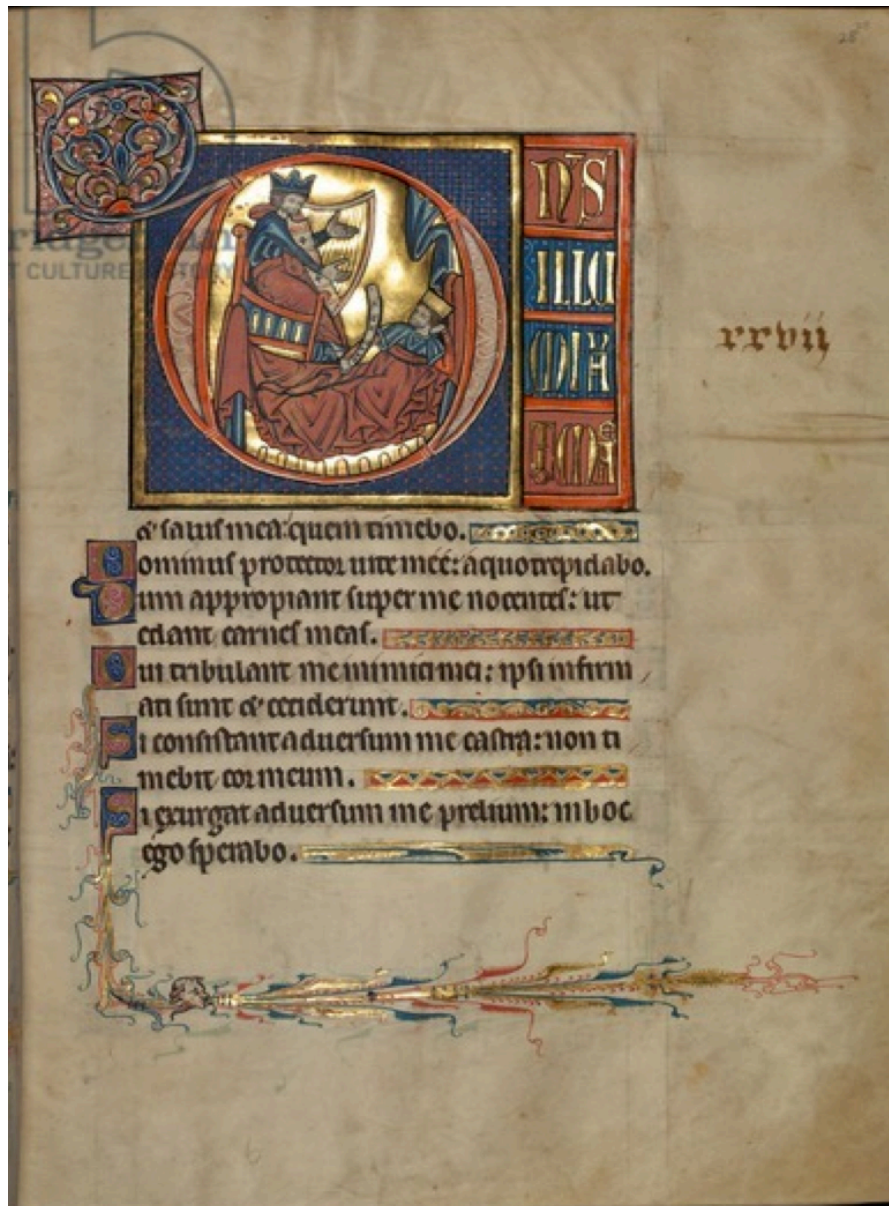 28
D
NS
ILLU
MINA
TIO MEA
xxvii
& salus mea: quem timebo.
Dominus protector uite meę: a quo trepidabo.
Dum appropiant super me nocentes: ut
edant carnes meas.
Qui tribulant me inimici mei: ipsi infirm
ati sunt & ceciderunt.
Si consistant aduersum me castra: non ti
mebit cor meum.
Si exurgat aduersum me prelium: in hoc
ego sperabo.